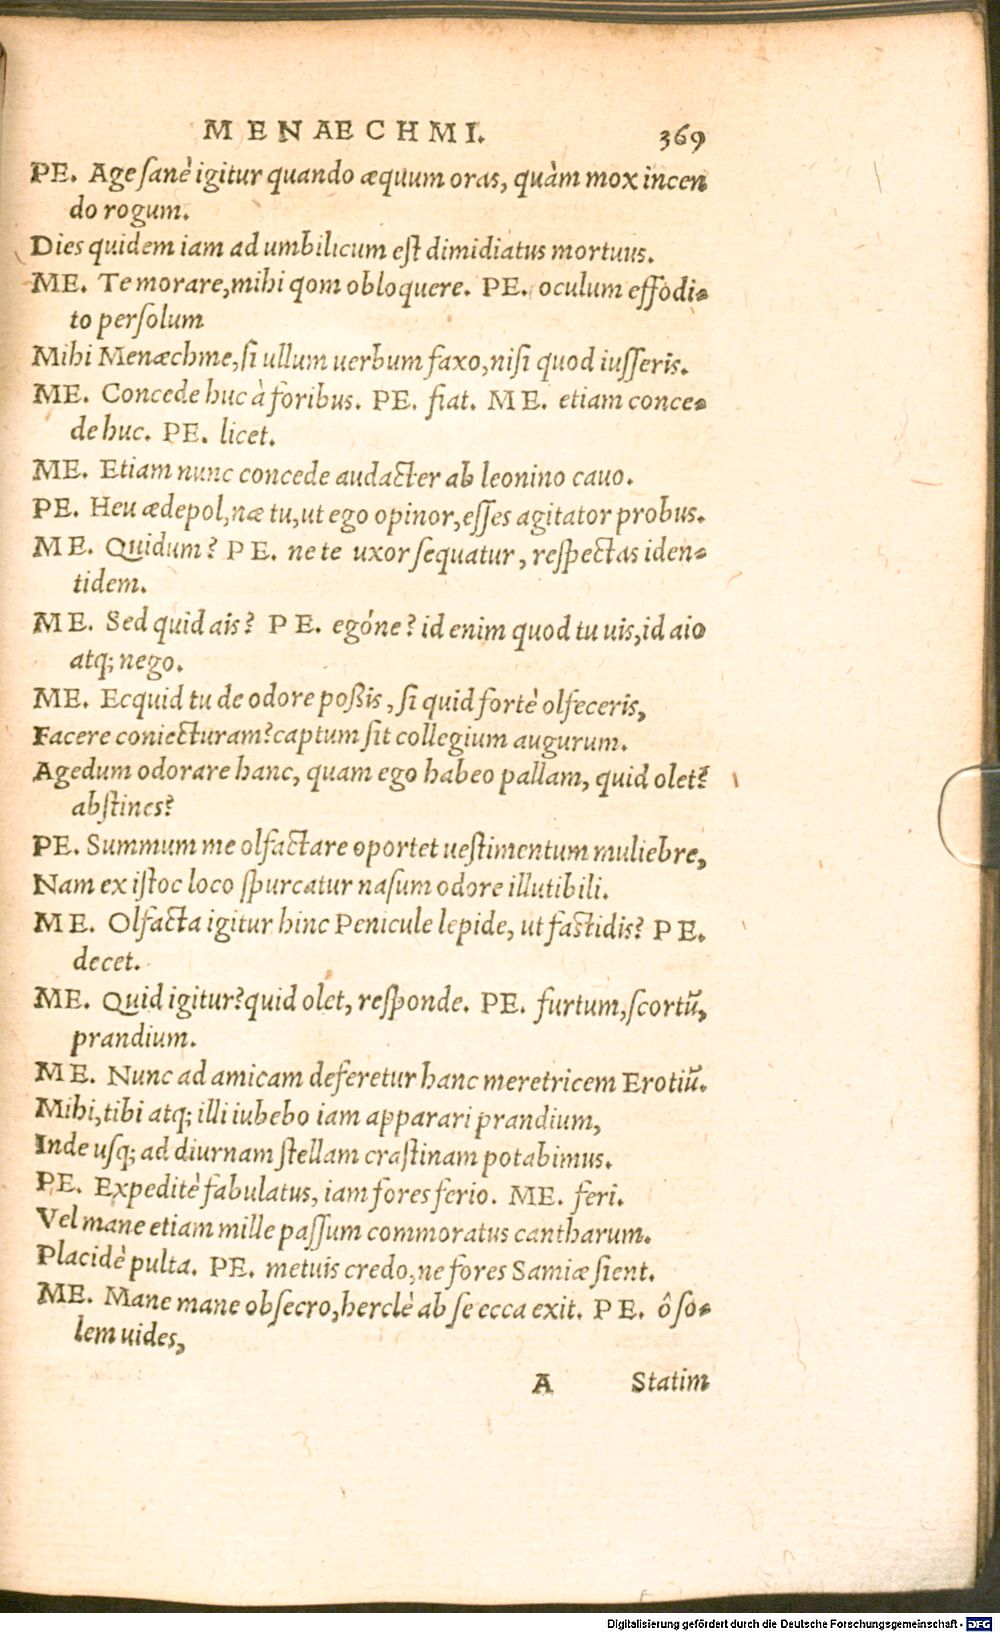 MENAECHMI. 369
PE. Age sanè igitur quando æquum oras, quàm mox incen
do rogum.
Dies quidem iam ad umbilicum est dimidiatus mortuus.
ME. Te morare, mihi qom obloquere. PE. oculum effodi-
to persolum
Mihi Menæchme, si ullum uerbum faxo, nisi quod iusseris.
ME. Concede huc à foribus. PE. fiat. ME. etiam conce-
de huc. PE. licet.
ME. Etiam nunc concede audacter ab leonino cauo.
PE. Heu ædepol, næ tu, ut ego opinor, esses agitator probus.
ME. Quidum? PE. ne te uxor sequatur, respectas iden-
tidem.
ME. Sed quid ais? PE. egóne? id enim quod tu uis, id aio
atq; nego.
ME. Ecquid tu de odore poßis, si quid fortè olfeceris,
Facere coniecturam? captum sit collegium augurum.
Agedum odorare hanc, quam ego habeo pallam, quid olet?
abstines?
PE. Summum me olfactare oportet uestimentum muliebre,
Nam ex istoc loco spurcatur nasum odore illutibili.
ME. Olfacta igitur hinc Penicule lepide, ut fastidis? PE.
decet.
ME. Quid igitur? quid olet, responde. PE. furtum, scortũ,
prandium.
ME. Nunc ad amicam deferetur hanc meretricem Erotiũ.
Mihi, tibi atq; illi iubebo iam apparari prandium,
Inde usq; ad diurnam stellam crastinam potabimus.
PE. Expeditè fabulatus, iam fores ferio. ME. feri.
Vel mane etiam mille passum commoratus cantharum.
Placidè pulta. PE. metuis credo, ne fores Samiæ sient.
ME. Mane mane obsecro, herclè ab se ecca exit. PE. ô so-
lem uides,
A Statim
Digitalisierung gefördert durch die Deutsche Forschungsgemeinschaft - DFG